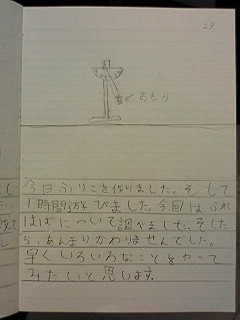 29
おもり
今日ふりこを作りました。そして
1時間遊びました。今回はふれ
はばについて調べました。そした
ら、あんまりかわりませんでした。
早くいろいろなことをやって
みたいと思います。